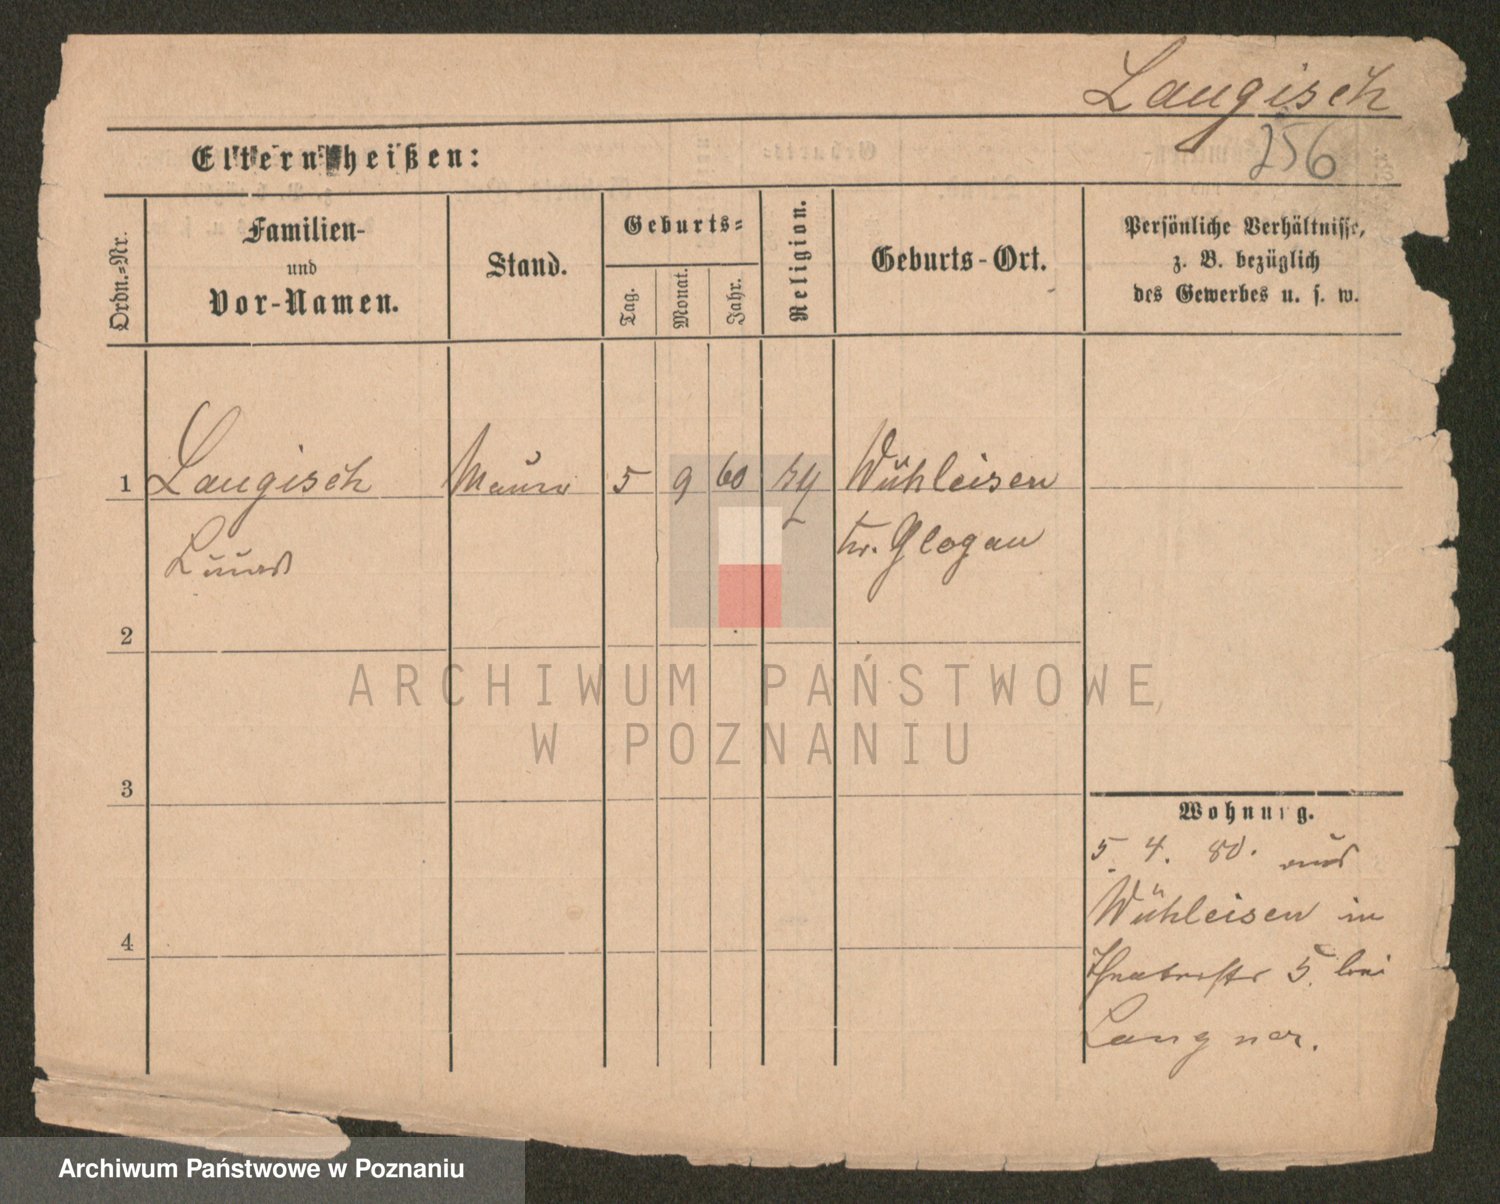 Laugisch
256
Eltern heißen:
Ordn.-Nr.
Familien-
und
Vor-Namen.
Stand.
Geburts-
Tag.
Monat.
Jahr.
Religion.
Geburts-Ort.
Persönliche Verhältnisse,
z. B. bezüglich
des Gewerbes u. s. w.
1
Laugisch
5
9
60
Wühleisen
Kr. Glogau
2
3
4
Wohnung.
5. 4. 80. aus
Wühleisen in
5. bei
Langner.
ARCHIWUM PAŃSTWOWE
W POZNANIU
Archiwum Państwowe w Poznaniu